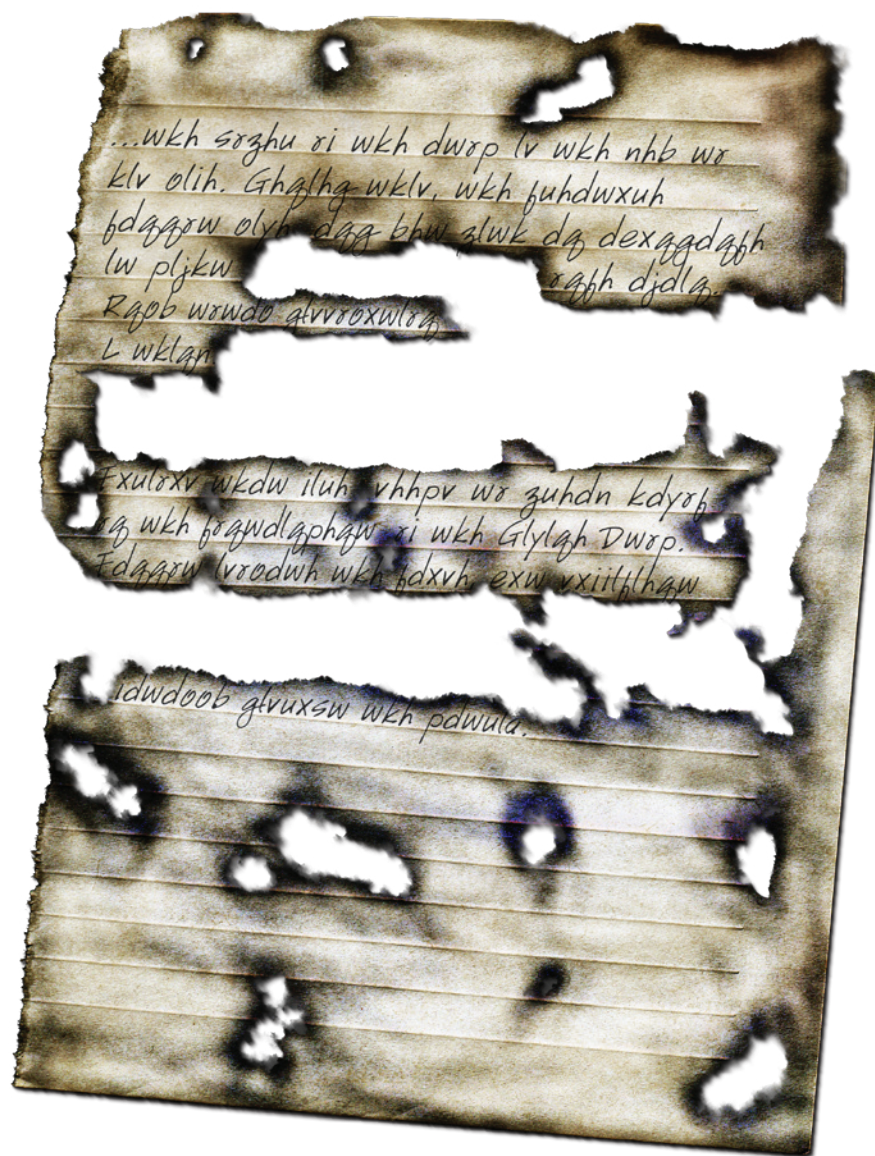 ...wkh srzhu ri wkh dwrp lv wkh nhb wr
klv olih. Ghqlhg wklv, wkh fuhdwxuh
fdqqrw olyh, dqg bhw zlwk dq dexqgdqfh
lw pljkw rqfh djdlq.
Rqob wrwdo glvvroxwlrq
L wklqn
Fxulrxv wkdw iluh vhhpv wr zuhdn kdyrf
rq wkh frqwdlqphqw ri wkh Glylqh Dwrp.
Fdqqrw lvrodwh wkh fdxvh, exw vxiilflhqw
idwdoob glvuxsw wkh pdwula.